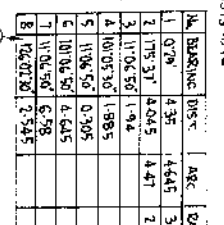 No BEARING DIST. ARC
1 0°29' 4.35 4.645 3
2 175°37' 4.045 4.47 2
3 11°06'50" 1.94
4 101°05'30" 1.885
5 11°06'50" 0.305
6 101°06'50" 4.645
7 11°04'50" 6.58
8 2.545